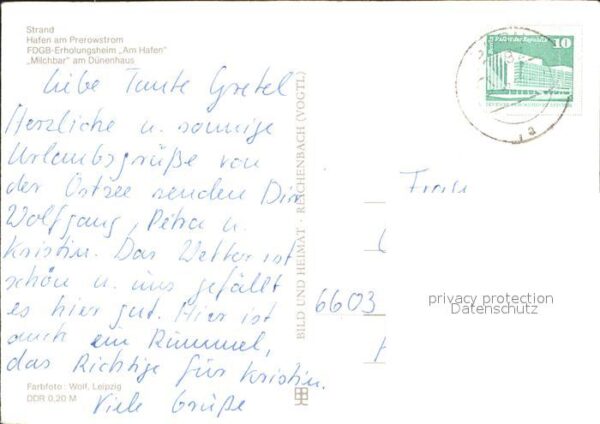 Strand
Hafen am Prerowstrom
FDGB-Erholungsheim „Am Hafen"
„Milchbar" am Dünenhaus
Liebe Tante Gretel
Herzliche u. sonnige
Urlaubsgrüße von
der Ostsee senden Dir
Wolfgang, Petra u.
Kristin. Das Wetter ist
schön u. uns gefällt
es hier gut. Hier ist
auch ein Rummel,
das Richtige für Kristin.
Viele Grüße
Farbfoto: Wolf, Leipzig
DDR 0,20 M
BILD UND HEIMAT · REICHENBACH (VOGTL)
Palast der Republik
10
Frau
6603
privacy protection
Datenschutz